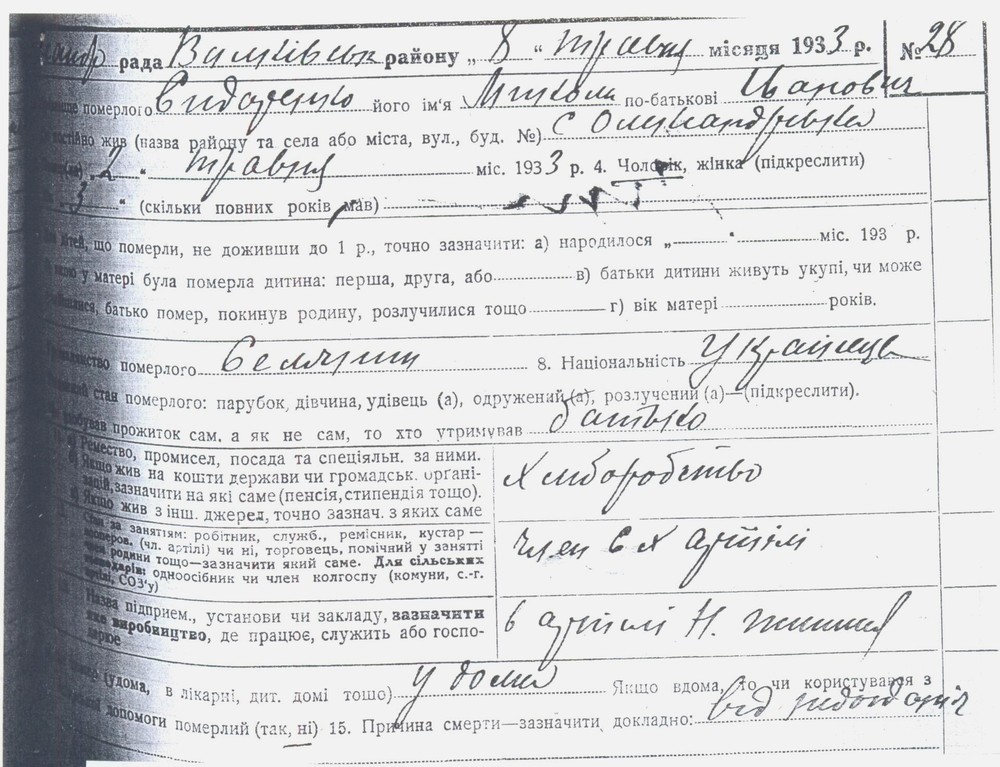 рада Валківськ району „ 8 “ травня місяця 1933 р. № 28
померлого його ім'я Микола по-батькові Іванович
жив (назва району та села або міста, вул., буд. №) с Олександрівка
2 “ травня міс. 1933 р. 4. Чоловік, жінка (підкреслити)
3 “ (скільки повних років мав)
дітей, що померли, не доживши до 1 р., точно зазначити: а) народилося „ “ міс. 193 р.
у матері була померла дитина: перша, друга, або в) батьки дитини живуть укупі, чи може
батько помер, покинув родину, розлучилися тощо г) вік матері років.
померлого Селянин 8. Національність Українець
стан померлого: парубок, дівчина, удівець (а), одружений (а), розлучений (а)—(підкреслити).
прожиток сам, а як не сам, то хто утримував батько
а) Ремество, промисел, посада та спеціяльн. за ними.
б) Якщо жив на кошти держави чи громадськ. органі-
зацій, зазначити на які саме (пенсія, стипендія тощо).
в) Якщо жив з інш. джерел, точно зазнач. з яких саме
Хліборобство
Стан за занятям: робітник, служб., ремісник, кустар —
кооперов. (чл. артілі) чи ні, торговець, помічний у занятті
член родини тощо—зазначити який саме. Для сільських
господарів: одноосібник чи член колгоспу (комуни, с.-г.
артілі, СОЗ'у)
член с х артілі
Назва підприєм., установи чи закладу, зазначити
яке виробництво, де працює, служить або госпо-
дарює
в артілі Н. життя
(удома, в лікарні, дит. домі тошо) у дома Якщо вдома, то чи користувався з
допомоги померлий (так, ні) 15. Причина смерти—зазначити докладно: від